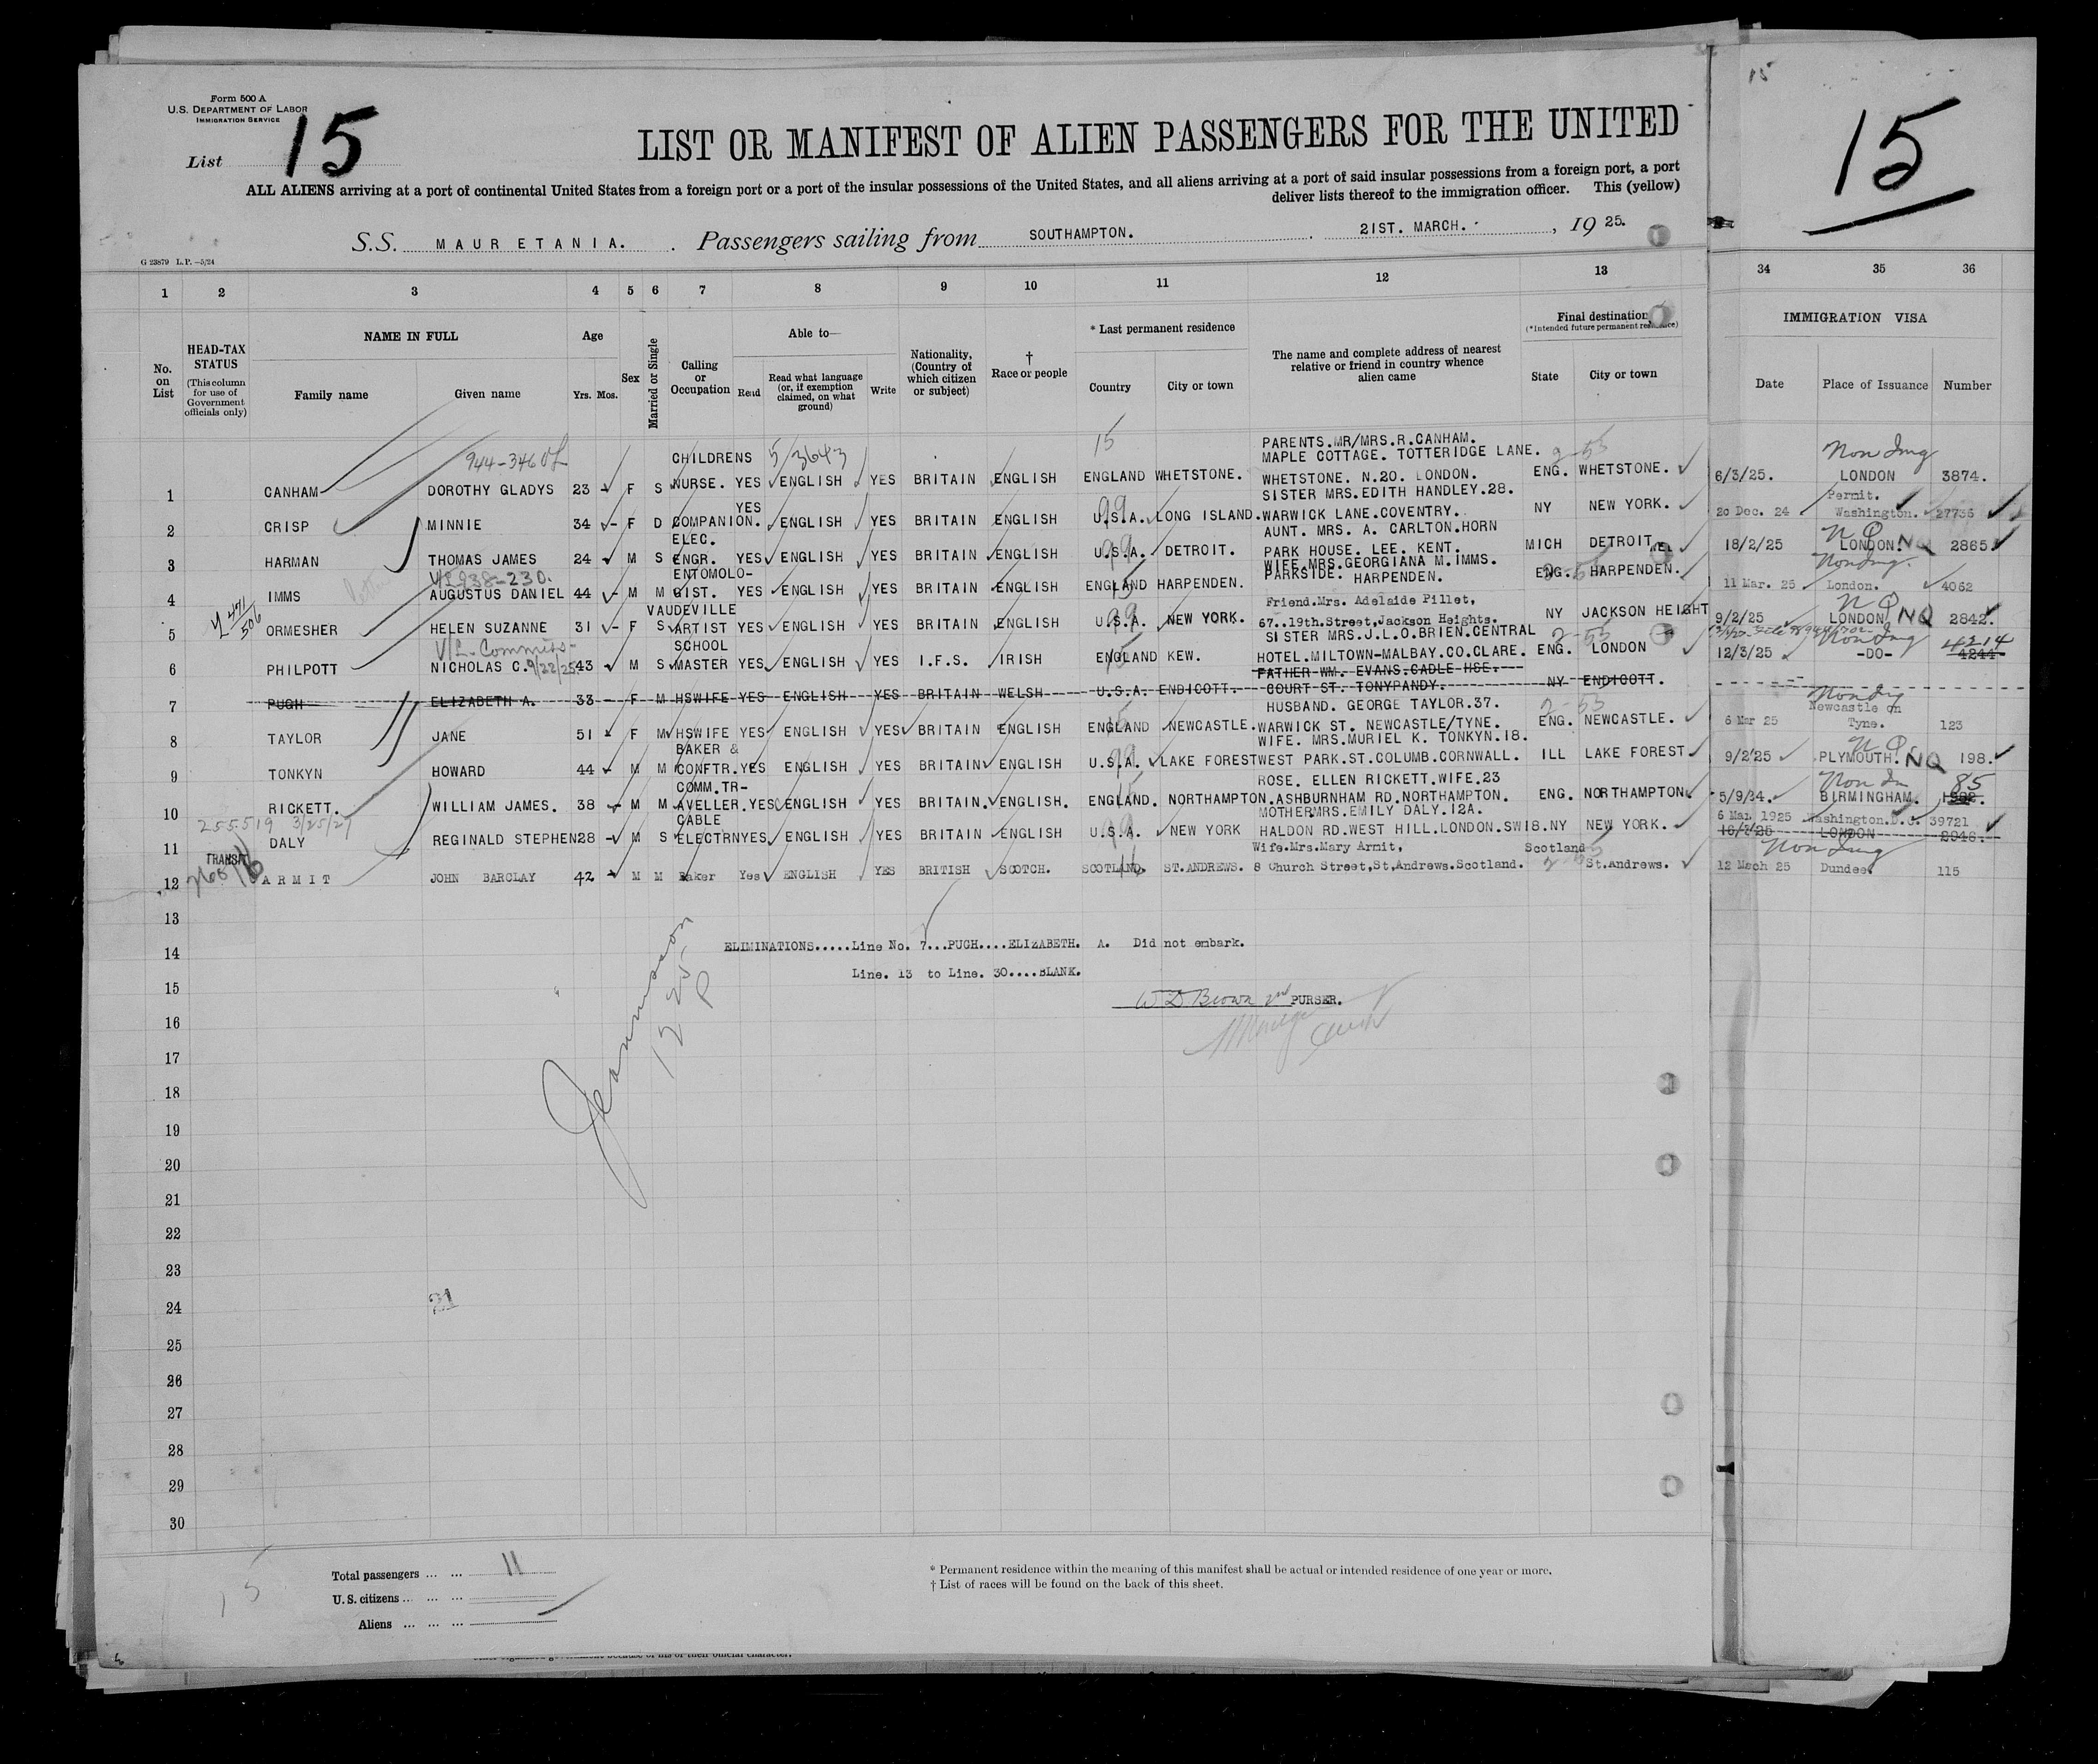 Form 500 A
U.S. DEPARTMENT OF LABOR
IMMIGRATION SERVICE
List 15
LIST OR MANIFEST OF ALIEN PASSENGERS FOR THE UNITED
ALL ALIENS arriving at a port of continental United States from a foreign port or a port of the insular possessions of the United States, and all aliens arriving at a port of said insular possessions from a foreign port, a port
deliver lists thereof to the immigration officer. This (yellow)
S.S. MAURETANIA. Passengers sailing from SOUTHAMPTON. 21ST. MARCH. , 19 25.
G 23879 L.P.—5/24
15
15
1 2 3 4 5 6 7 8 9 10 11 12 13 34 35 36
No. on List
HEAD-TAX STATUS
(This column for use of Government officials only)
NAME IN FULL
Family name Given name
Age
Yrs. Mos.
Sex
Married or Single
Calling or Occupation
Able to—
Read
Read what language (or, if exemption claimed, on what ground)
Write
Nationality, (Country of which citizen or subject)
† Race or people
* Last permanent residence
Country City or town
The name and complete address of nearest relative or friend in country whence alien came
Final destination
(*Intended future permanent residence)
State City or town
IMMIGRATION VISA
Date Place of Issuance Number
944-346 5/3643 15 2-55 Non Img
1 CANHAM DOROTHY GLADYS 23 F S CHILDRENS NURSE. YES ENGLISH YES BRITAIN ENGLISH ENGLAND WHETSTONE. PARENTS.MR/MRS.R.CANHAM. MAPLE COTTAGE. TOTTERIDGE LANE. WHETSTONE. N.20. LONDON. ENG. WHETSTONE. 6/3/25. LONDON 3874.
2 CRISP MINNIE 34 F D COMPANION. YES ENGLISH YES BRITAIN ENGLISH U.S.A. LONG ISLAND. SISTER MRS.EDITH HANDLEY.28. WARWICK LANE.COVENTRY. NY NEW YORK. 20 Dec. 24 Permit. Washington. 27736
3 HARMAN THOMAS JAMES 24 M S ELEC. ENGR. YES ENGLISH YES BRITAIN ENGLISH U.S.A. DETROIT. AUNT. MRS. A. CARLTON.HORN PARK HOUSE. LEE. KENT. MICH DETROIT 18/2/25 LONDON. NQ 2865.
V/L 938-230. Non Img.
4 IMMS AUGUSTUS DANIEL 44 M M ENTOMOLO-GIST. YES ENGLISH YES BRITAIN ENGLISH ENGLAND HARPENDEN. WIFE.MRS.GEORGIANA M.IMMS. PARKSIDE. HARPENDEN. ENG. HARPENDEN. 11 Mar. 25 London. 4062
5 ORMESHER HELEN SUZANNE 31 F S VAUDEVILLE ARTIST YES ENGLISH YES BRITAIN ENGLISH U.S.A. NEW YORK. Friend.Mrs. Adelaide Pillet, 67..19th.Street.Jackson Heights. NY JACKSON HEIGHT 9/2/25 LONDON NQ 2842.
9/22/25 2-55 Non Img 4214
6 PHILPOTT NICHOLAS C. 43 M S SCHOOL MASTER YES ENGLISH YES I.F.S. IRISH ENGLAND KEW. SISTER MRS.J.L.O.BRIEN.CENTRAL HOTEL.MILTOWN-MALBAY.CO.CLARE. ENG. LONDON 12/3/25 -DO- 4244
7 PUGH ELIZABETH A. 33 F M HSWIFE YES ENGLISH YES BRITAIN WELSH U.S.A. ENDICOTT. FATHER WM. EVANS.CADLE HSE. COURT ST. TONYPANDY. NY ENDICOTT.
8 TAYLOR JANE 51 F M HSWIFE YES ENGLISH YES BRITAIN ENGLISH ENGLAND NEWCASTLE. HUSBAND. GEORGE TAYLOR.37. WARWICK ST. NEWCASTLE/TYNE. ENG. NEWCASTLE. 6 Mar 25 Newcastle on Tyne. 123
9 TONKYN HOWARD 44 M M BAKER & CONFTR. YES ENGLISH YES BRITAIN ENGLISH U.S.A. LAKE FOREST WIFE. MRS.MURIEL K. TONKYN.18. WEST PARK.ST.COLUMB.CORNWALL. ILL LAKE FOREST 9/2/25 PLYMOUTH. NQ 198.
10 RICKETT. WILLIAM JAMES. 38 M M COMM.TR-AVELLER. YES ENGLISH YES BRITAIN. ENGLISH. ENGLAND. NORTHAMPTON. ROSE. ELLEN RICKETT.WIFE.23 ASHBURNHAM RD.NORTHAMPTON. ENG. NORTHAMPTON. 5/9/24. BIRMINGHAM. 85
255519 3/25/27
11 DALY REGINALD STEPHEN 28 M S CABLE ELECTRN YES ENGLISH YES BRITAIN ENGLISH U.S.A. NEW YORK MOTHER MRS.EMILY DALY.12A. HALDON RD.WEST HILL.LONDON.SW18. NY NEW YORK. 6 Mar. 1925 Washington.D.C. 39721
LONDON
TRANSIT
12 ARMIT JOHN BARCLAY 42 M M Baker Yes ENGLISH YES BRITISH SCOTCH. SCOTLAND. ST.ANDREWS. Wife.Mrs.Mary Armit, 8 Church Street,St,Andrews.Scotland. Scotland St.Andrews. 12 Mach 25 Dundee. 115
13
ELIMINATIONS.....Line No. 7...PUGH....ELIZABETH. A. Did not embark.
14
Line. 13 to Line. 30....BLANK.
15
W D Brown PURSER.
16
17
18
19
20
21
22
23
24
21
25
26
27
28
29
30
15
Total passengers ... ... 11
U.S. citizens ... ... ...
Aliens ... ... ...
* Permanent residence within the meaning of this manifest shall be actual or intended residence of one year or more.
† List of races will be found on the back of this sheet.